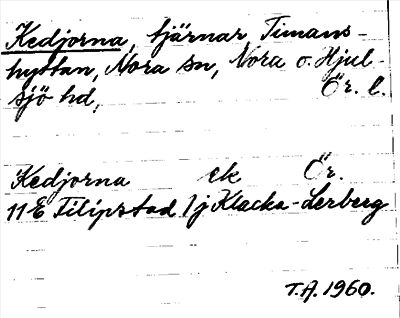 Kedjorna, tjärnar Timans-
hyttan, Nora sn, Nora o. Hjul-
sjö hd, Ör. l.
Kedjorna ek Ör.
11 E Filipstad /j Klacka-Lerberg
T.A. 1960.